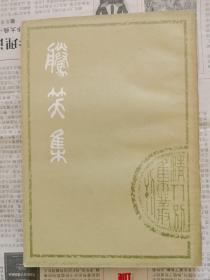 騰笑集
清人別
集叢
刊